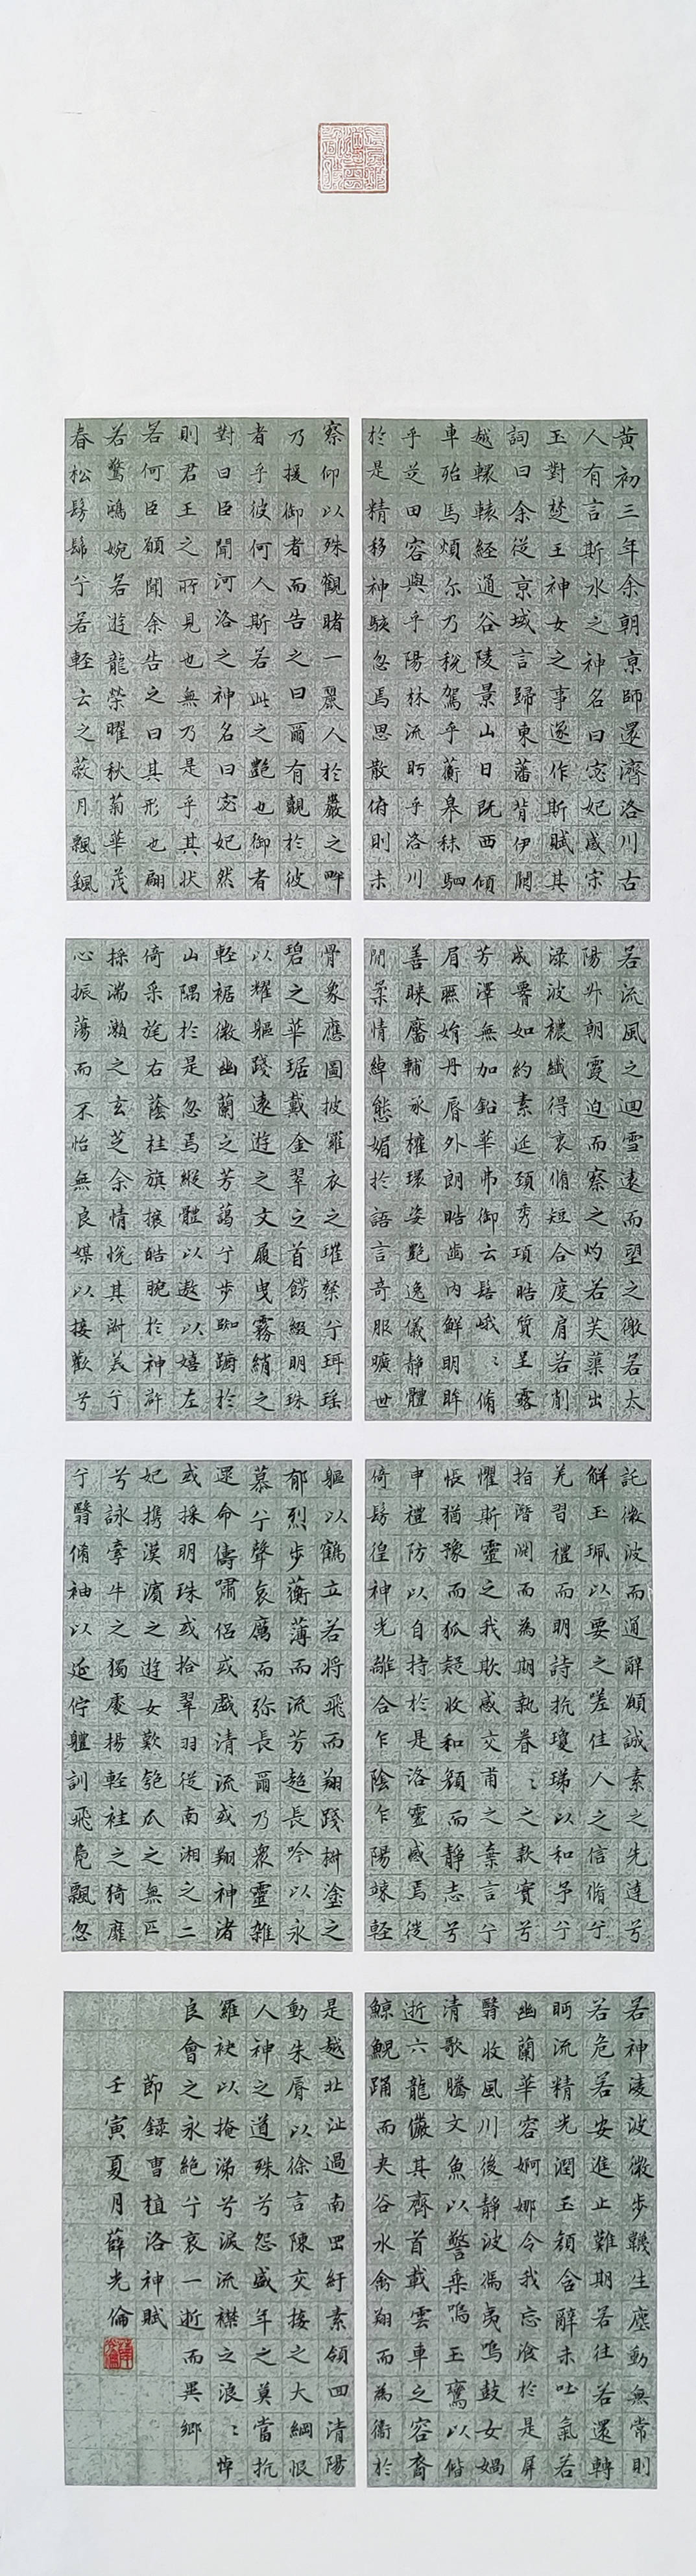 黄初三年余朝京師還濟洛川古
人有言斯水之神名曰宓妃感宋
玉對楚王神女之事遂作斯賦其
詞曰余從京域言歸東藩背伊闕
越轘轅經通谷陵景山日既西傾
車殆馬煩尔乃稅駕乎蘅皋秣駟
乎芝田容與乎陽林流眄乎洛川
於是精移神駭忽焉思散俯則未
察仰以殊觀睹一麗人於巖之畔
乃援御者而告之曰爾有觀於彼
者乎彼何人斯若此之艷也御者
對曰臣聞河洛之神名曰宓妃然
則君王之所見也無乃是乎其狀
若何臣願聞余告之曰其形也翩
若驚鴻婉若遊龍榮曜秋菊華茂
春松髣髴兮若輕云之蔽月飄颻
若流風之迴雪遠而望之皦若太
陽升朝霞迫而察之灼若芙蕖出
淥波穠纖得衷脩短合度肩若削
成署如約素延頸秀項皓質呈露
芳澤無加鉛華弗御云髻峨〻脩
眉聯娟丹唇外朗皓齒內鮮明眸
善睞靨輔承權環姿艷逸儀靜體
閒柔情綽態媚於語言奇服曠世
骨象應圖披羅衣之璀粲兮珥瑶
碧之華琚戴金翠之首飾綴明珠
以耀軀踐遠遊之文履曳霧綃之
輕裾微幽蘭之芳藹兮步踟躕於
山隅於是忽焉縱體以遨以嬉左
倚采旄右蔭桂旗攘皓腕於神滸
採湍瀨之玄芝余情悅其淑美兮
心振蕩而不怡無良媒以接歡兮
託微波而通辭願誠素之先達兮
解玉珮以要之嗟佳人之信脩兮
羌習禮而明詩抗瓊珶以和予兮
指潛淵而為期執眷〻之款實兮
懼斯靈之我欺感交甫之棄言兮
悵猶豫而狐疑收和顏而靜志兮
申禮防以自持於是洛靈感焉徙
倚髣徨神光離合乍陰乍陽竦輕
軀以鶴立若將飛而翔踐椒塗之
郁烈步蘅薄而流芳超長吟以永
慕兮聲哀厲而弥長爾乃衆靈雜
遝命儔嘯侶或戲清流或翔神渚
或採明珠或拾翠羽從南湘之二
妃攜漢濱之遊女歎匏瓜之無匹
兮詠牽牛之獨處揚輕袿之猗靡
兮翳脩袖以延佇體訓飛鳧飄忽
若神淩波微步韈生塵動無常則
若危若安進止難期若往若還轉
眄流精光潤玉顏含辭未吐氣若
幽蘭華容婀娜令我忘飡於是屏
翳收風川後靜波馮夷鳴鼓女媧
清歌騰文魚以警乘鳴玉鸞以偕
逝六龍儼其齊首載雲車之容裔
鯨鯢踊而夾谷水禽翔而為衞於
是越北沚過南岡紆素領回清陽
動朱唇以徐言陳交接之大綱恨
人神之道殊兮怨盛年之莫當抗
羅袂以掩涕兮淚流襟之浪〻悼
良會之永絕兮哀一逝而異鄉
節錄曹植洛神賦
壬寅夏月薛光倫